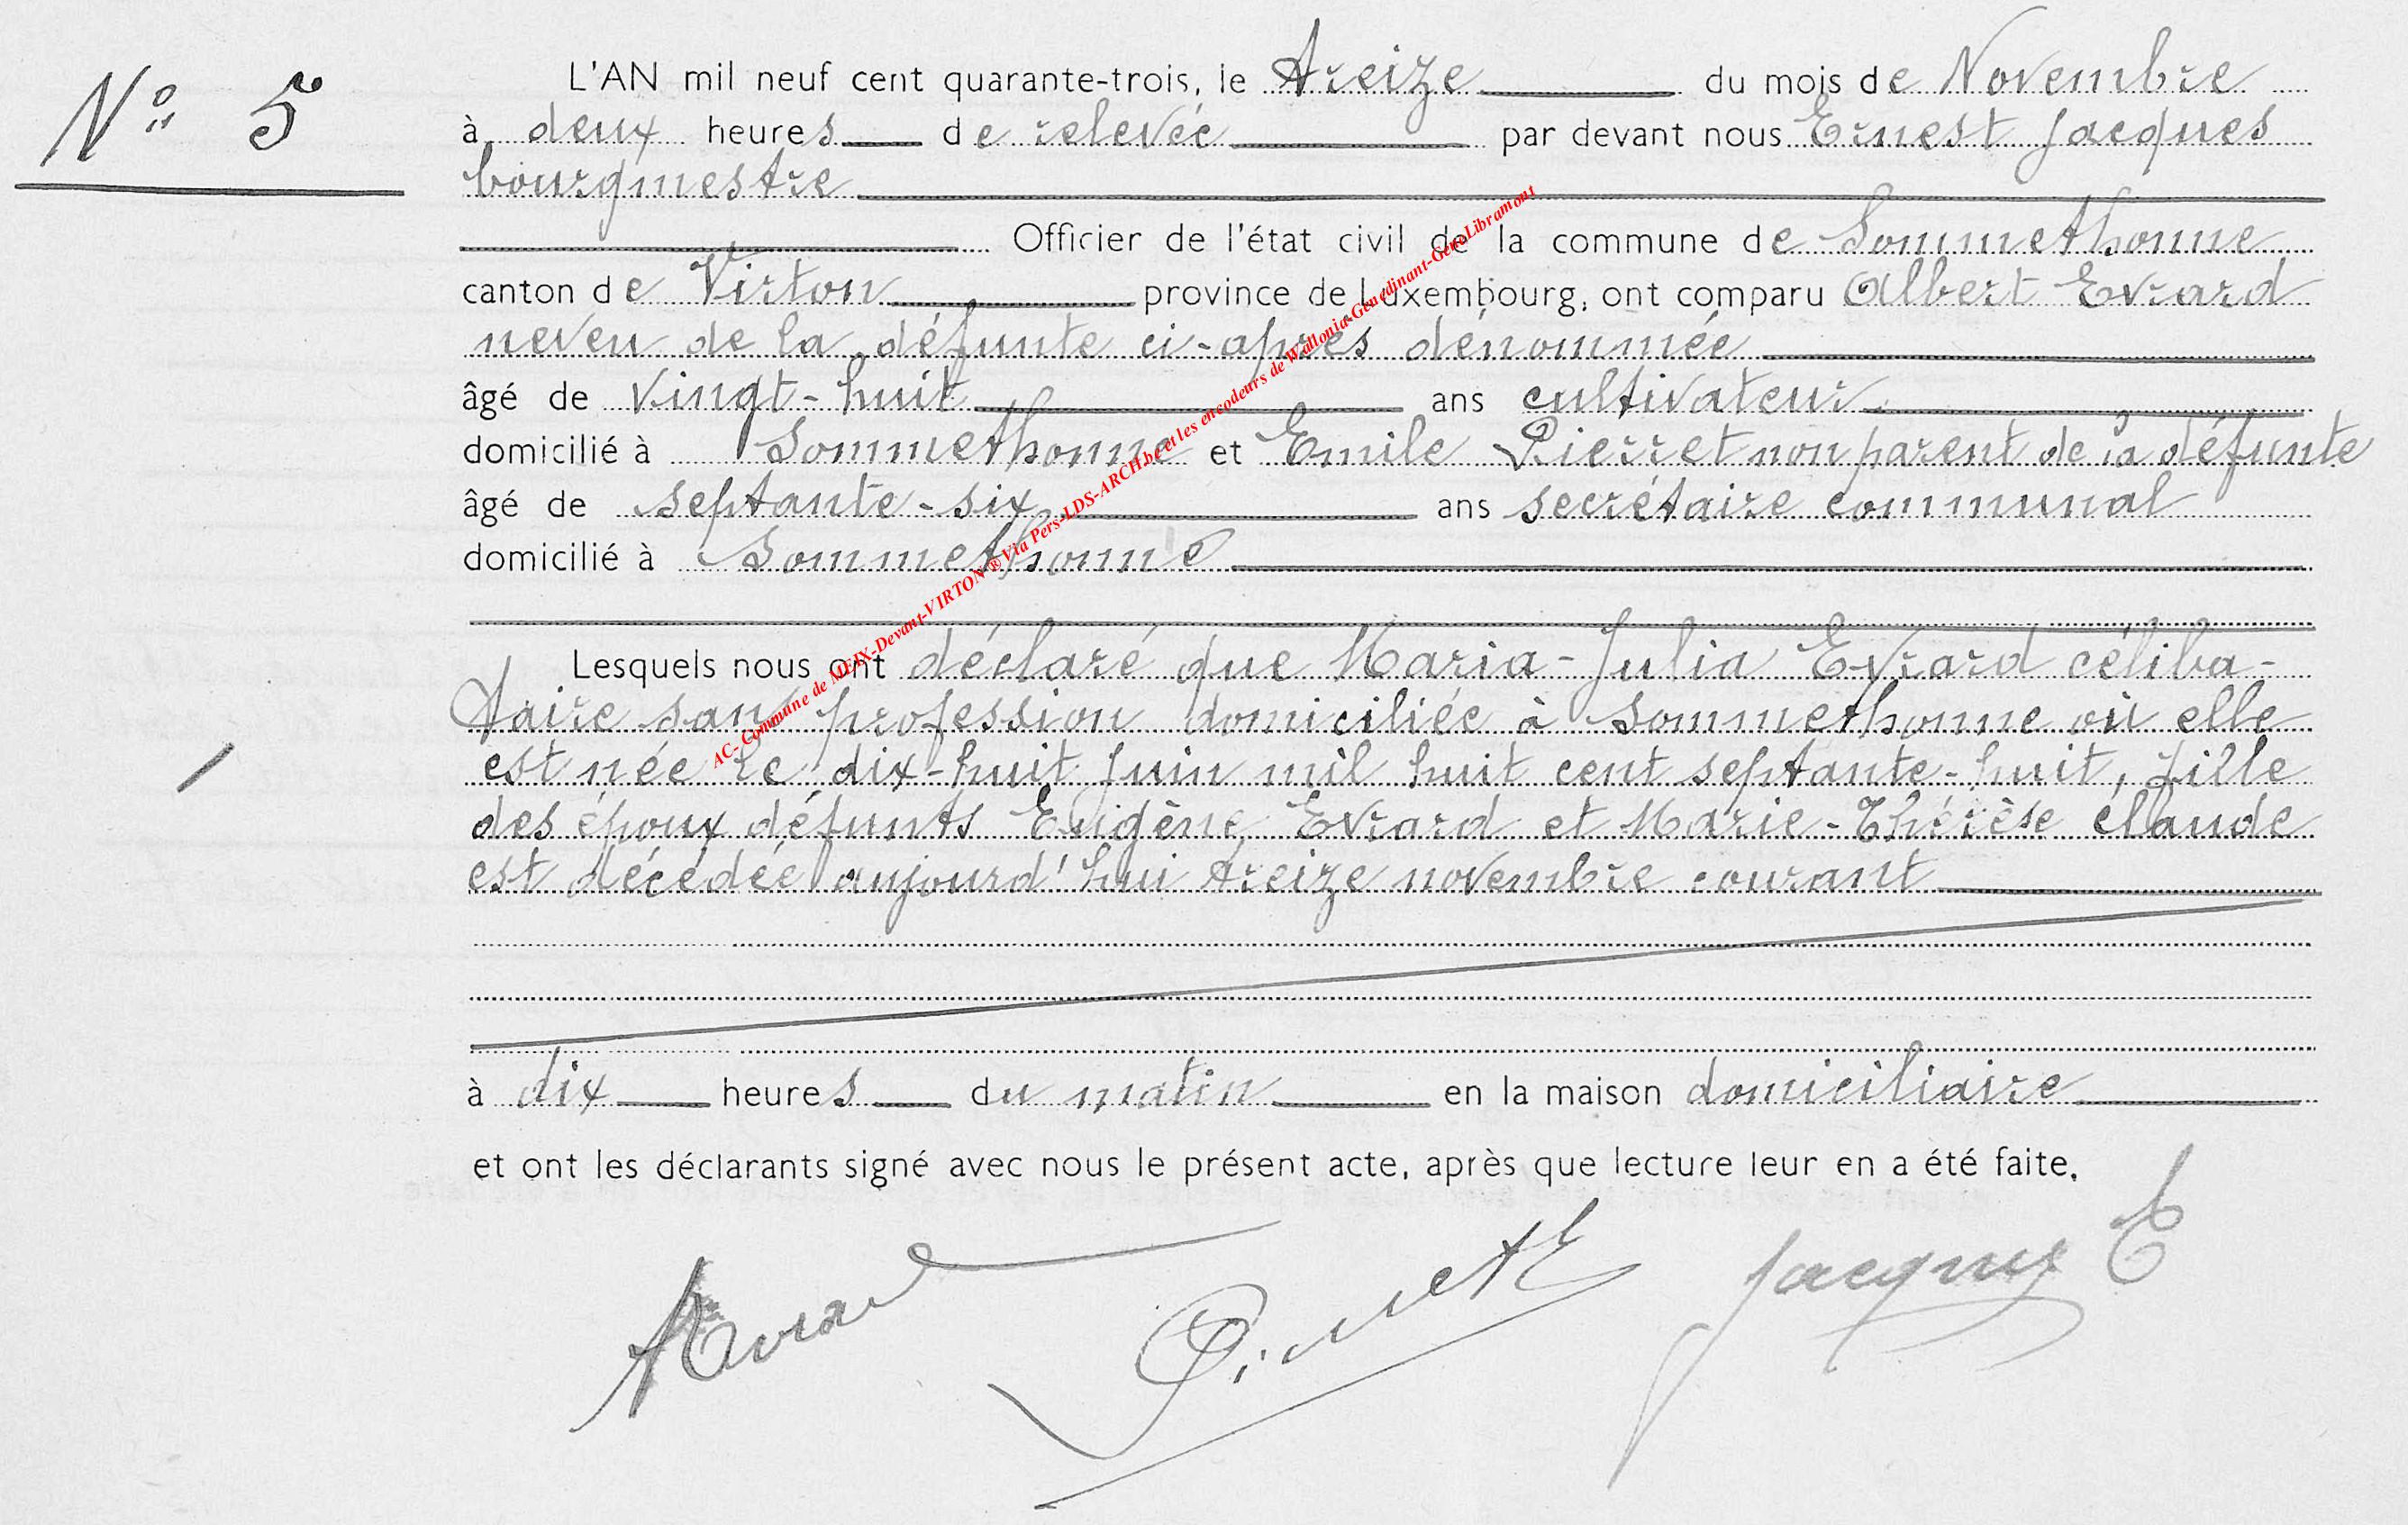 N° 5
L'AN mil neuf cent quarante-trois, le treize du mois de Novembre
à deux heures de relevée par devant nous Ernest Jacques
bourgmestre
Officier de l'état civil de la commune de Sommethonne
canton de Virton province de Luxembourg, ont comparu Albert Evrard
neveu de la défunte ci-après dénommée
âgé de vingt-huit ans cultivateur
domicilié à Sommethonne et Emile Pierret non parent de la défunte
âgé de septante-six ans secrétaire communal
domicilié à Sommethonne
Lesquels nous ont déclaré que Maria-Julia Evrard céliba-
taire sans profession domiciliée à Sommethonne où elle
est née le dix-huit juin mil huit cent septante-huit, fille
des époux défunts Eugène Evrard et Marie-Thérèse Claude
est décédée aujourd'hui treize novembre courant
à dix heures du matin en la maison domiciliaire
et ont les déclarants signé avec nous le présent acte, après que lecture leur en a été faite.
AEvrard Pierret E Jacques E
AC- Commune de MEIX-Devant-VIRTON ® Via Pers-LDS-ARCH.be et les encodeurs de Wallonia-Genedinant-GenoLibramont